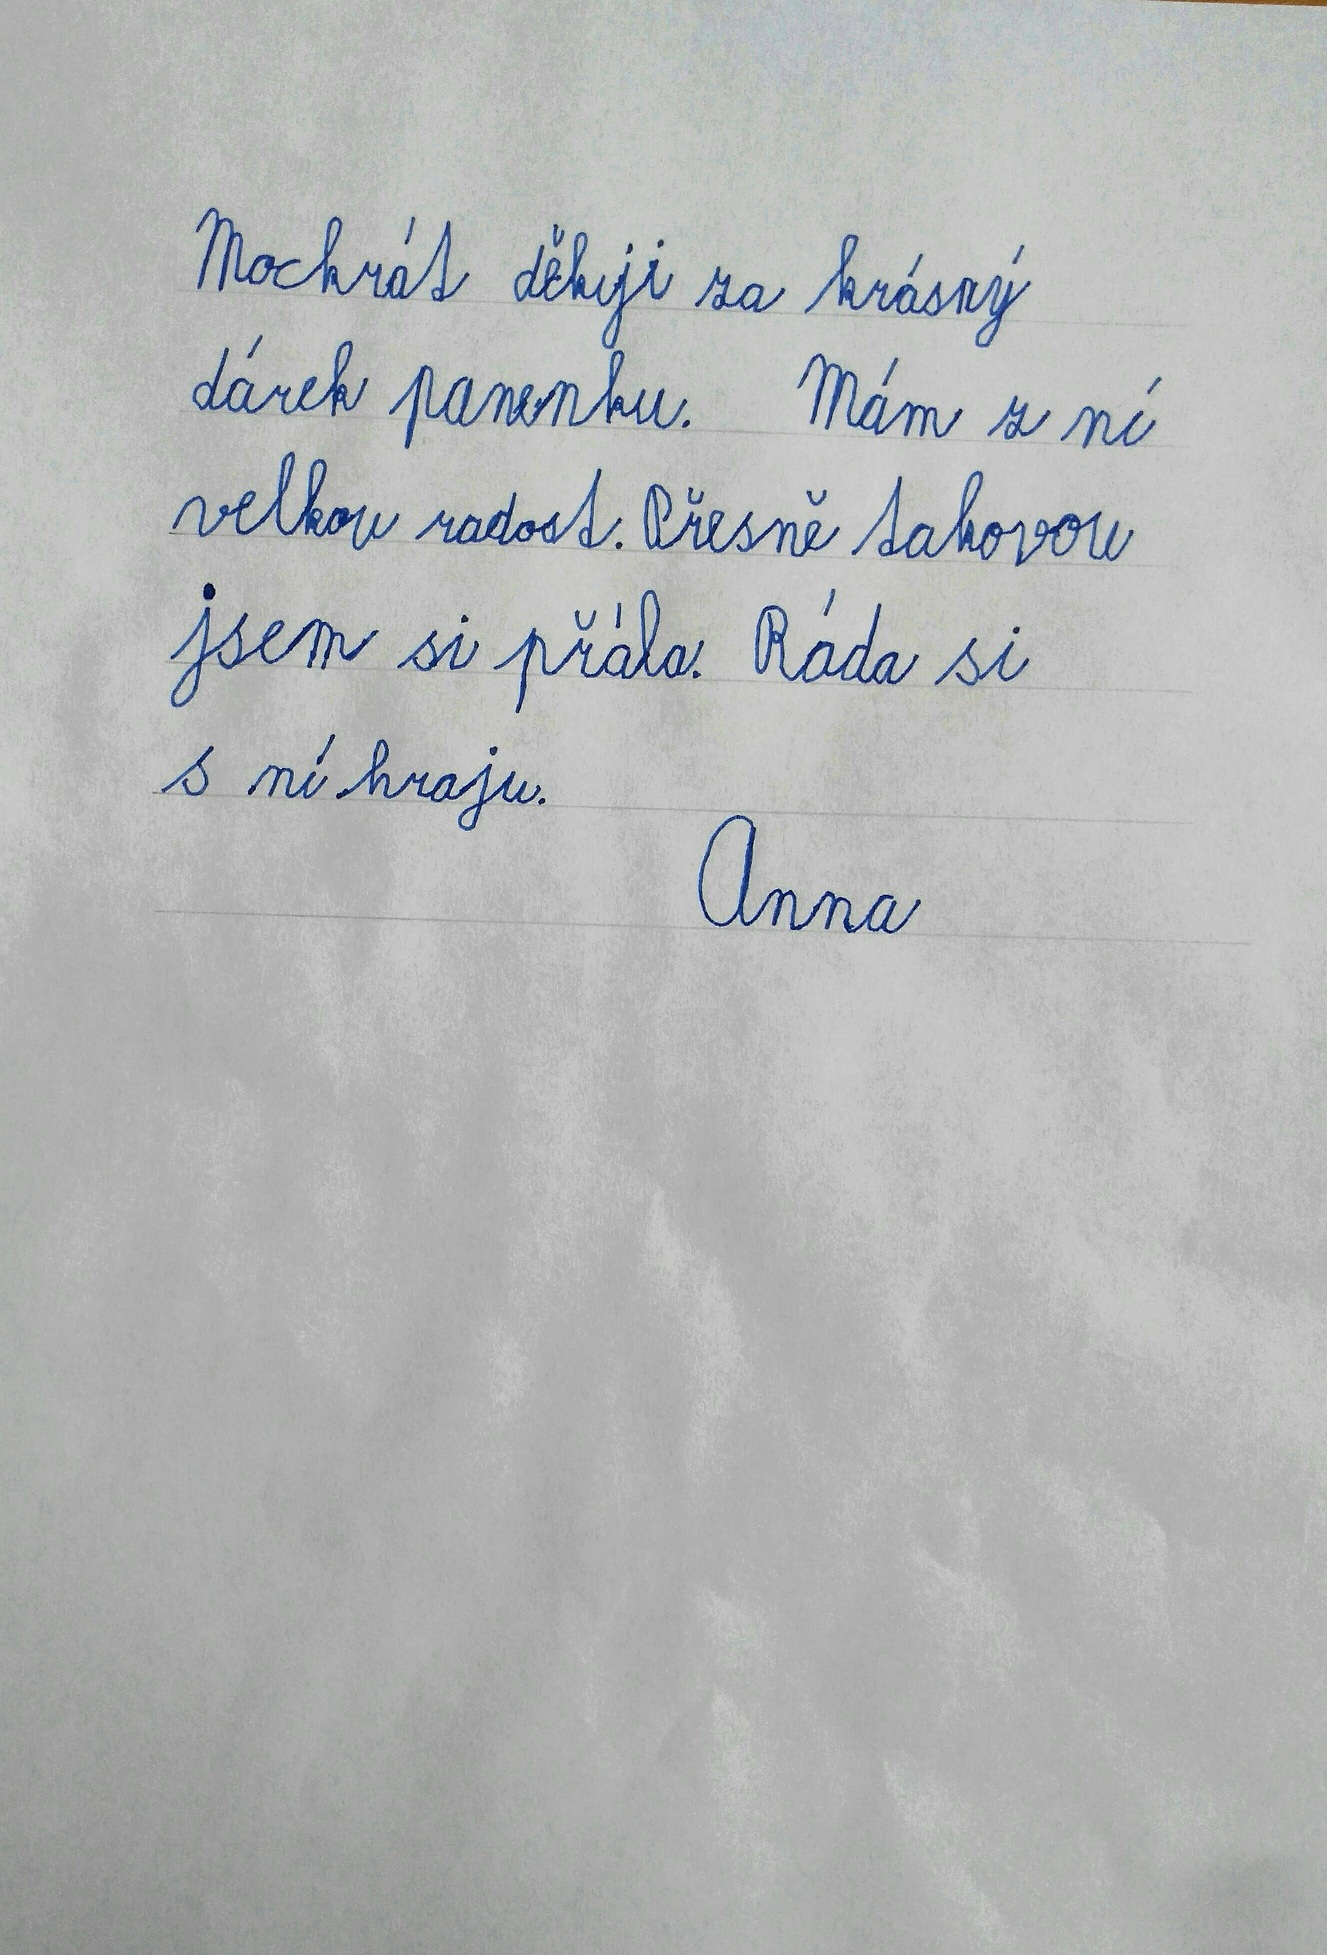 Mockrát děkuji za krásný
dárek panenku. Mám z ní
velkou radost. Přesně takovou
jsem si přála. Ráda si
s ní hraju.
Anna